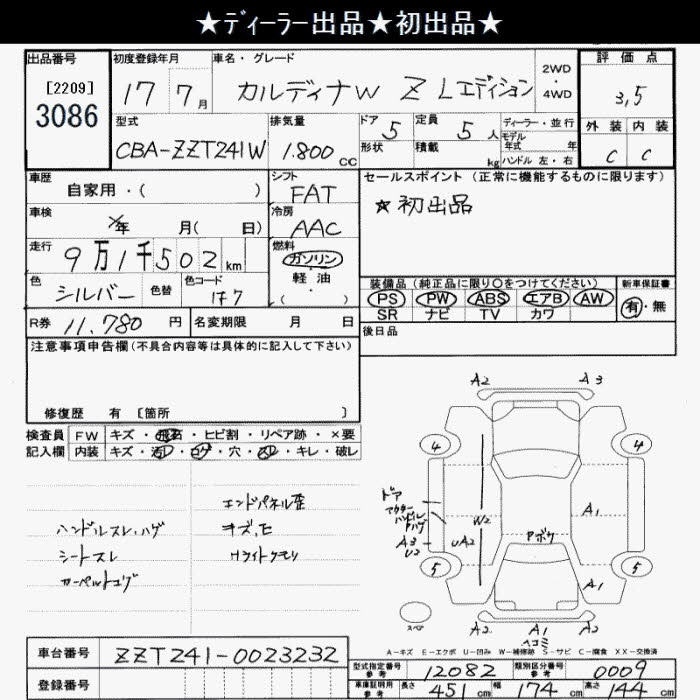 ★ディーラー出品★初出品★
出品番号
[2209]
3086
初度登録年月
17 7月
車名・グレード
カルディナW Z Lエディション
2WD
4WD
評価点
3,5
外装 内装
C C
型式
CBA-ZZT241W
排気量
1.800 CC
ドア 5
形状
定員 5人
積載 kg
ディーラー・並行
モデル年式 年
ハンドル 左・右
車歴
自家用・( )
シフト
FAT
セールスポイント (正常に機能するものに限ります)
★初出品
車検
年 月( 日)
冷房
AAC
走行
9万1千502km
燃料
ガソリン
軽油
( ・ )
色
シルバー
色替
色コード
1F7
装備品 (純正品に限り○をつけてください)
PS PW ABS エアB AW
SR ナビ TV カワ
新車保証書
有・無
R券 11.780 円
名変期限 月 日
後日品
注意事項申告欄 (不具合内容等は具体的に記入して下さい)
修復歴 有 [箇所 ]
検査員
記入欄
FW キズ・飛石・ヒビ割・リペア跡・×要
内装 キズ・汚レ・コゲ・穴・スレ・キレ・破レ
ハンドルスレ、ハゲ
シートスレ
カーペットコゲ
エンドパネル歪
キズ、E
Hライトクモリ
A2 A3
4 4
ドア
アウター
ハンドル
Pハゲ
A3
U2
W2
UA2
Pボケ
A1
A1
5 5
スペア
A2 A1 A2
ヘコミ
A-キズ E-エクボ U-凹み W-補修跡 S-サビ C-腐食 XX-交換済
車台番号
ZZT241-0023232
登録番号
型式指定番号
参考
12082
類別区分番号
参考
0009
車庫証明用
参考
長さ 451cm 幅 174cm 高さ 144cm